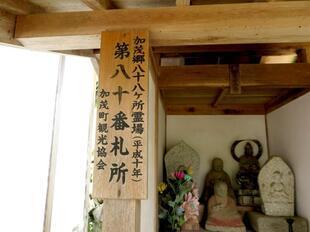 加茂郷八十八ケ所霊場(平成十年)
第八十番札所
加茂町観光協会